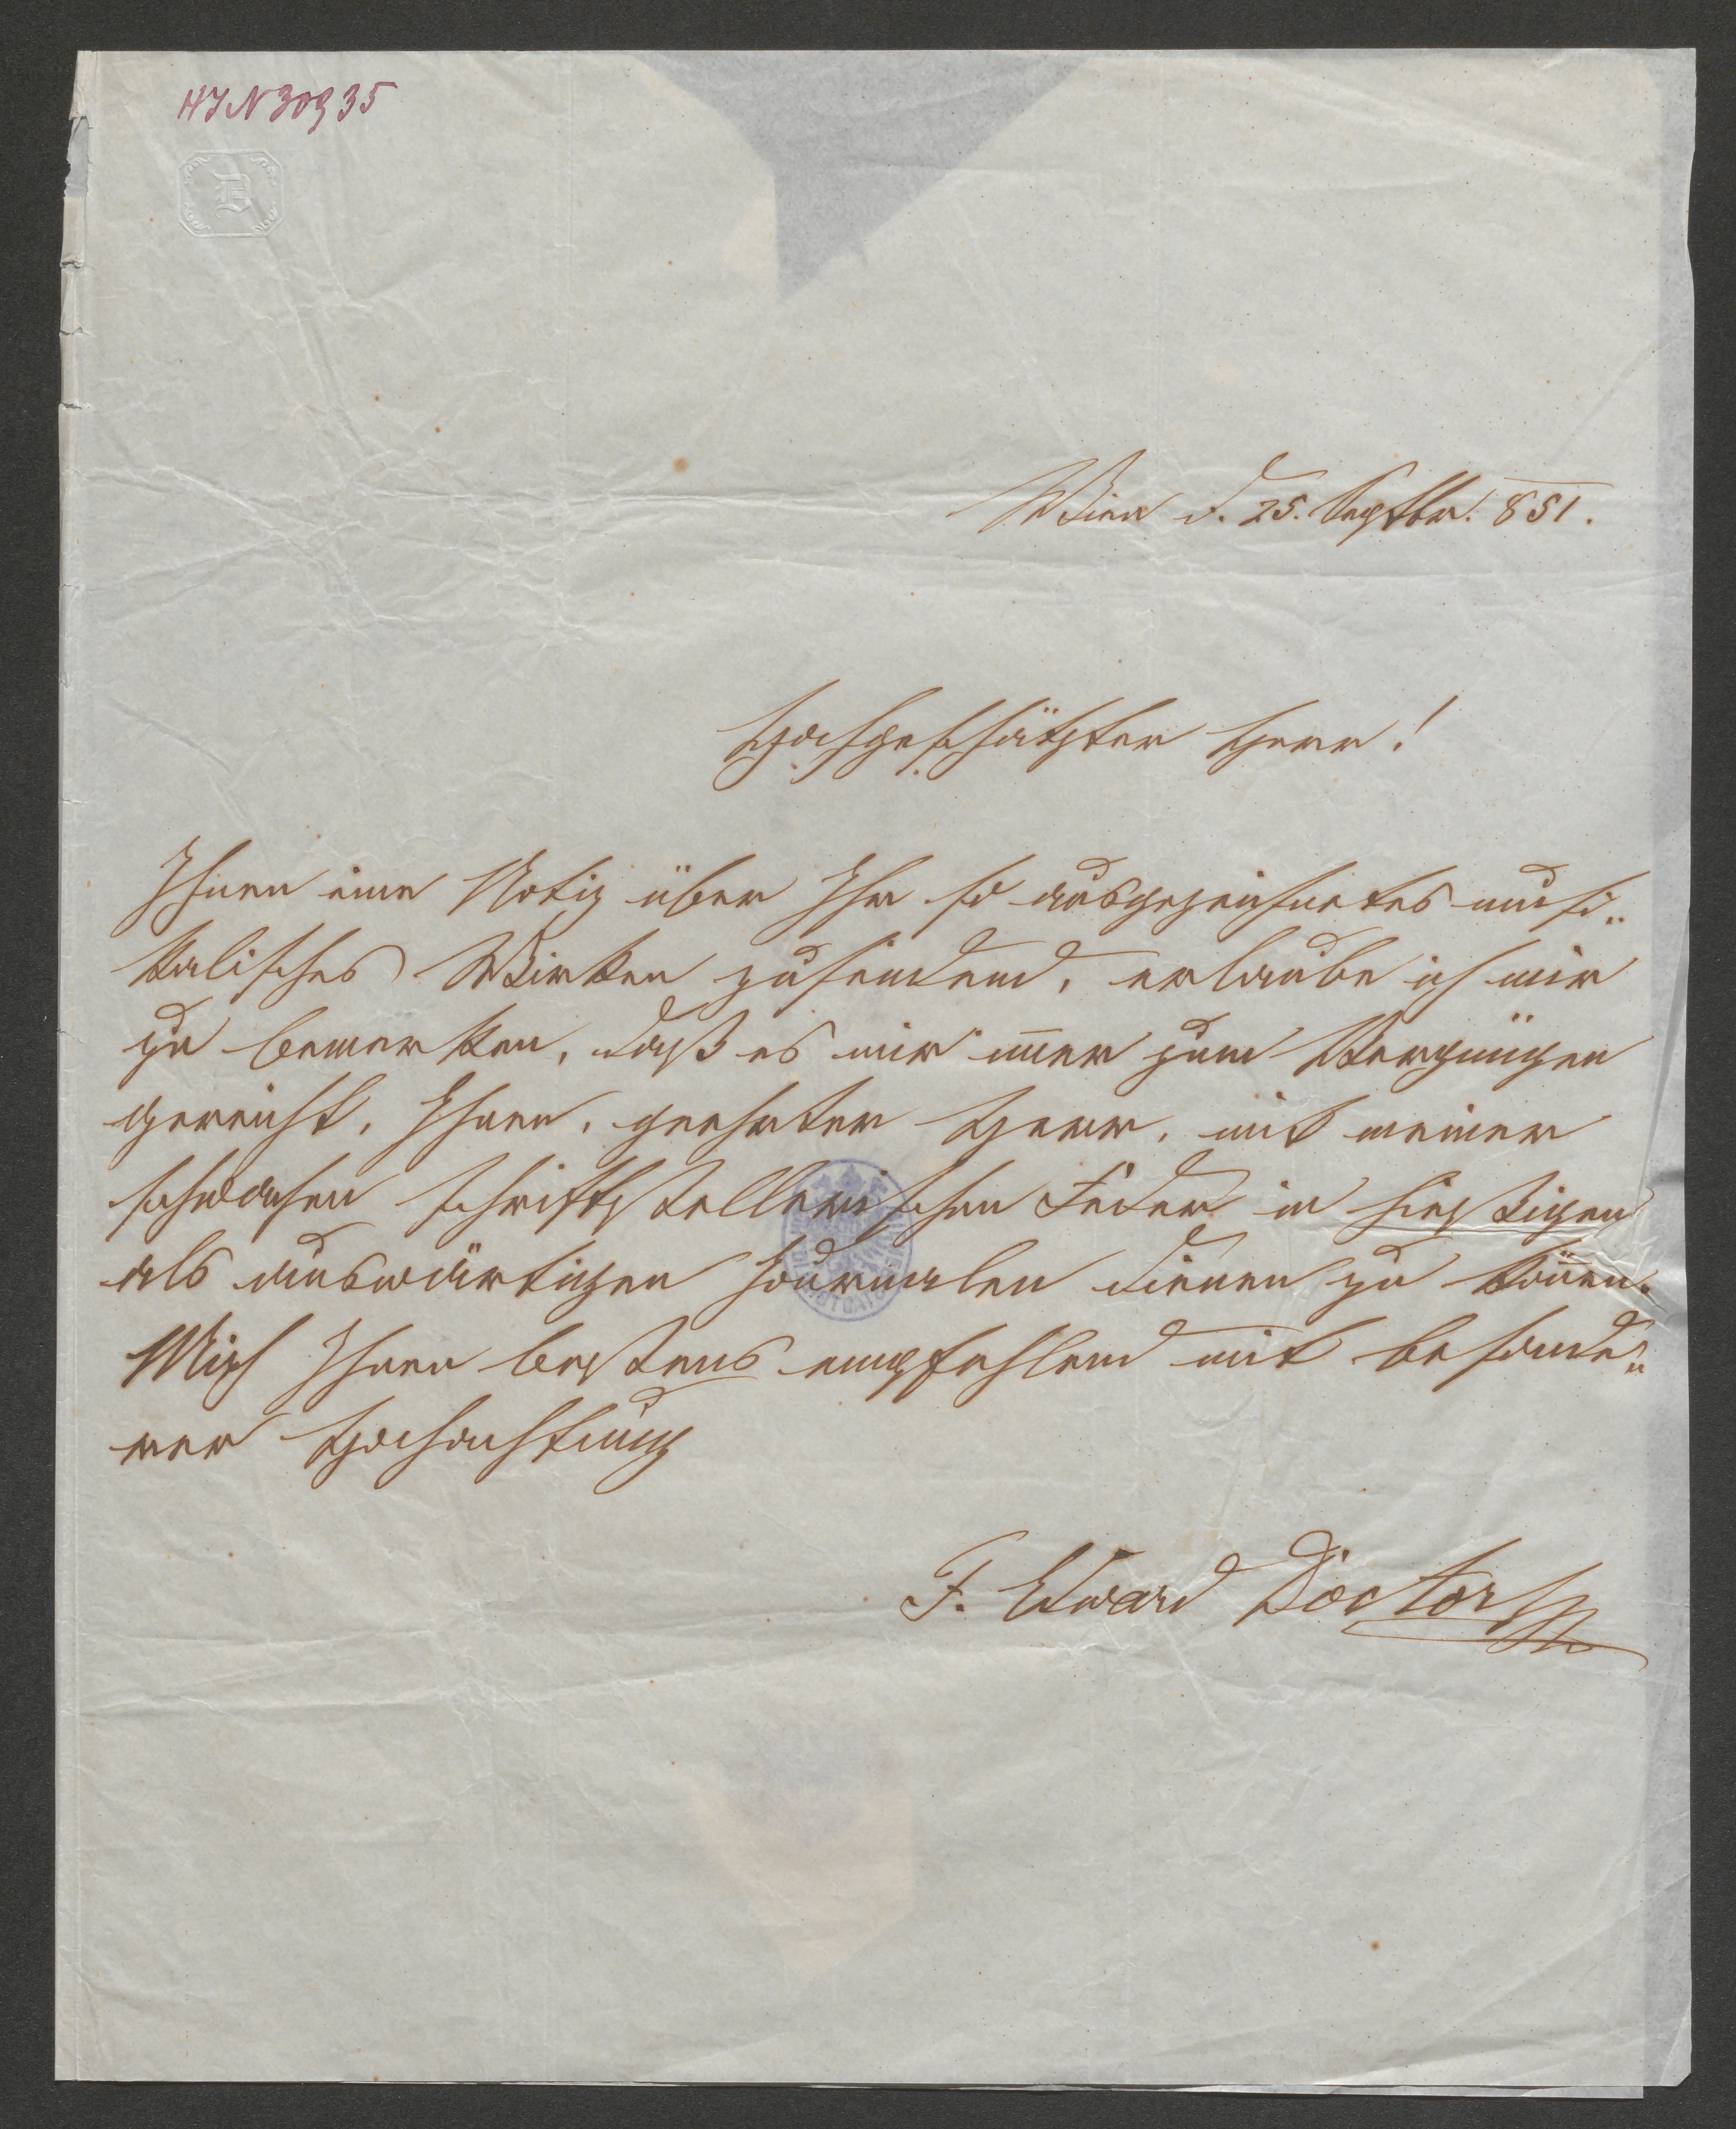 HIN 30935
D
Wien d. 25. Septbr. 851.
Hochgeschätzter Herr!
Ihnen eine Notiz über Ihr so ausgezeichnetes musi„
kalisches Wirken zusendend, erlaube ich mir
zu bemerken, daß es mir im̄er zum Vergnügen
gereicht, Ihnen, geehrter Herr, mit meiner
schwachen schriftstellerischen Feder in hiesigen
als auswärtigen Journalen dienen zu kön̄en.
Mich Ihnen bestens empfehlend mit besonde„
rer Hochachtung
F. Edward Doctor